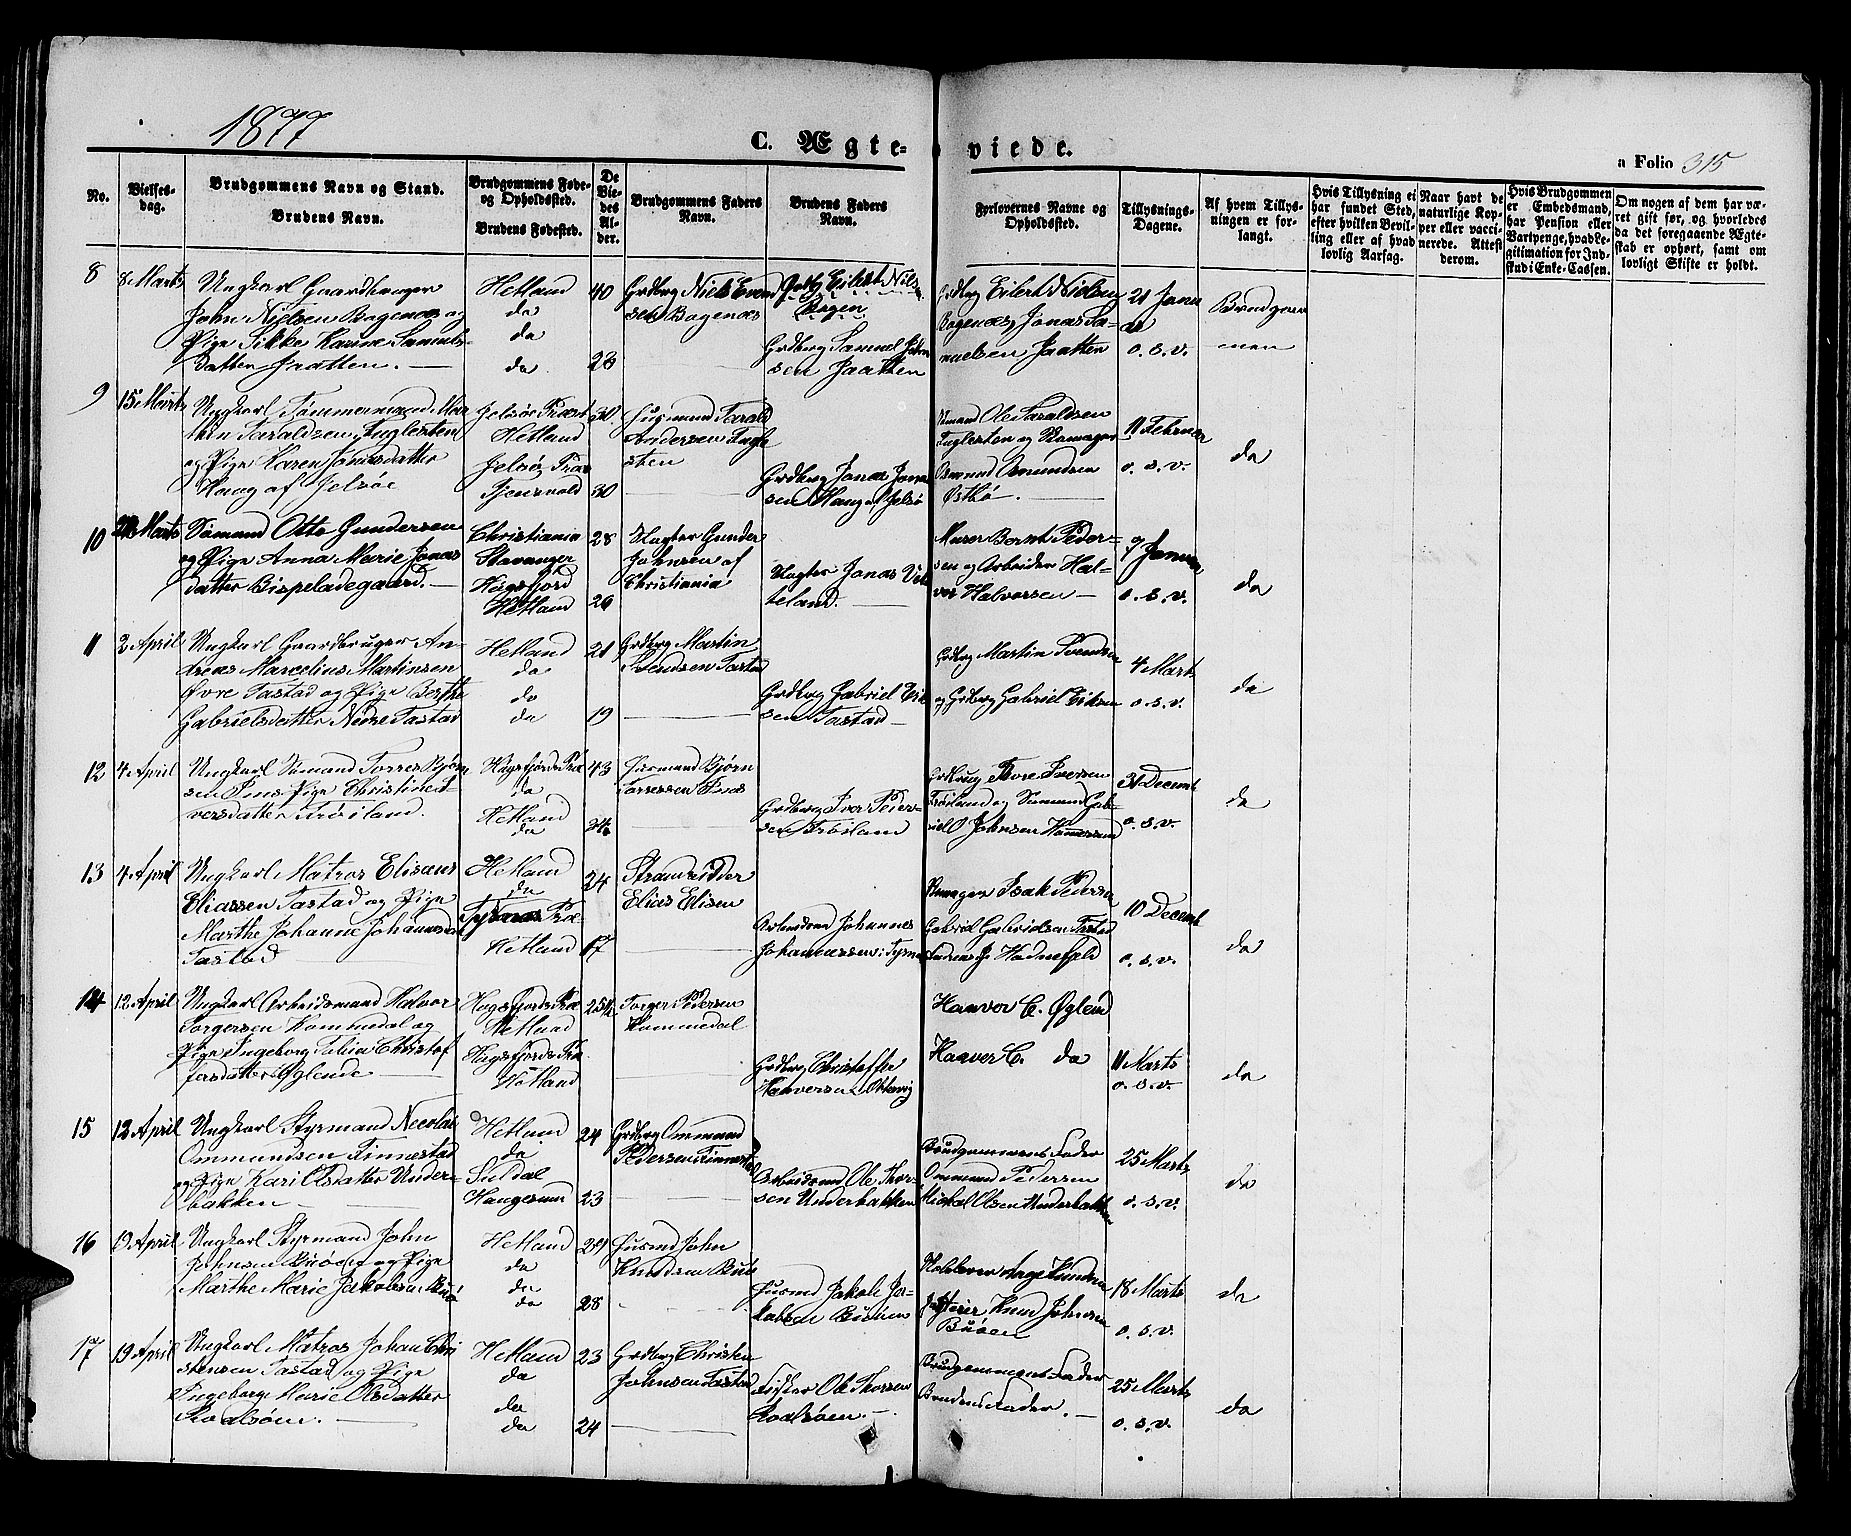 1877
C. Ægte-
viede.
a Folio 315
No.
Vielses-
dag.
Brudgommens Navn og Stand.
Brudens Navn.
Brudgommens Føde-
og Opholdssted.
Brudens Fødested.
De
Vie-
des
Al-
der.
Brudgommens Faders
Navn.
Brudens Faders
Navn.
Forlovernes Navne og
Opholdssted.
Tillysnings-
Dagene.
Af hvem Tillys-
ningen er for-
langt.
Hvis Tillysning ei
har fundet Sted,
efter hvilken Bevil-
ling eller af hvad
lovlig Aarsag.
Naar havt de
naturlige Kop-
per eller vacci-
nerede. Attest
derom.
Hvis Brudgommen
er Embedsmand,
har Pension eller
Vartpenge, hvad Le-
gitimation for Ind-
skud i Enke-Cassen.
Om nogen af dem har væ-
ret gift før, og hvorledes
da det foregaaende Ægte-
skab er ophørt, samt om
lovligt Skifte er holdt.
8
8 Marts
Ungkarl Gaardbruger
John Nielsen Bogenæs og
Pige Sikke Karine Samuels-
datter Jaatten.
Hetland
do
do
do
40
23
Grdbrg Niels Evend
sen Bogenæs
Grdbg Eilert Niels
Grdbrg Samuel John
sen Jaatten
Grdbrg Eilert Nielsen
Bogenæs, Jonas Sa-
muelsen Jaatten
21 Janu
ar
o. s. v.
Brudgom
men
9
15 Marts
Ungkarl Tømmermand Mar
thin Taraldsen Fuglesten
og Pige Karen Jonasdatter
Haug af Jelsøe
Jelsøe Præst
Hetland
Jelsø, Præs
Tjensvold
30
30
Husmand Tarald
Andersen Fugle
sten
Grdbrg Jonas Jona
sen Haug af Jelsø
Ole Taraldsen
Fuglesten og Skomager
Osmund Osmundsen
Østbø.
11 Februar
o. s. v.
do
10
Marts
Sømand Otto Gundersen
og Pige Anna Marie Jonas
datter Bispeladegaard.
Christiania
Stavanger
Høgsfjord
Hetland
28
26
Slagter Gunder
Johnsen af
Christiania
Slagter Jonas Vik
teland.
Murer Bernt Peder-
sen og Arbeider Hal-
vor Halvorsen
7 Januar
o. s. v.
do
11
2 April
Ungkarl Gaardbruger An-
dreas Marcelius Martinsen
Øvre Tastad og Pige Berthe
Gabrielsdatter Nedre Tastad
Hetland
do
do
do
21
19
Grdbrg Martin
Svendsen Tastad
Grdbrg Gabriel Eik
sen Tastad
Grdbrg Martin Svendsen
og Grdbrg Gabriel Eiksen
4 Marts
o. s. v.
do
12
4 April
Ungkarl Sømand Torres Bjørn
sen Fins Pige Christine I-
versdatter Trøiland.
Høgsfjords Præ
do
Hetland
do
43
34
Husmand Bjørn
Torressen Finds
Grdbrg Iver Peder-
sen Trøiland
Tore Iversen
Trøiland og Sømand Gab-
riel O Johnsen Hammersand
31 Decemb
o. s. v.
do
13
4 April
Ungkarl Matros Elisæus
Eliassen Tastad og Pige
Marthe Johanne Johannesdt
Tastad
Hetland
do
Tysnæs Præ
Hetland
24
17
Strandsidder
Elias Elisen
Arbmand Johannes
Johannessen i Tysnæs
Isak Pedersen
Gabriel Gabrielsen Tastad
10 Decemb
o. s. v.
do
14
12 April
Ungkarl Arbeidsmand Halvor
Torgersen Kommedal og
Pige Ingeborg Talia Christof
fersdatter Øglende
Høgsfjords Præ
Hetland
Høgsfjords Præ
Hetland
25½
Torger Pedersen
Kommedal
Grdbrg Christoffer
Haaversen Ottøvig
Haaver C. Øglend
Haaver C. do
11 Marts
o. s. v.
do
15
12 April
Ungkarl Styrmand Necolai
Ommundsen Finnestad
og Pige Kari Olsdatter Under-
bakken
Hetland
do
Suldal
Haugesund
24
23
Grdbrg Ommund
Pedersen Finnestad
Arbeidsmd Ole Thor-
sen Underbakken
Brudgommens Fader
Ommund Pedersen
Mickal Olsen Underbakken
25 Marts
o. s. v.
do
16
19 April
Ungkarl Styrmand John
Johnsen Buøen og Pige
Marthe Marie Jakobsen Buø
Hetland
do
do
do
29
28
Husmd John
Knudsen Buø
Husmd Jakob Ja-
kobsen Buøen
Knud Johnsen
Buøen
18 Marts
o. s. v.
do
17
19 April
Ungkarl Matros Johan Chri
stensen Tastad og Pige
Ingeborg Marie Olsdatter
Roalsøen.
Hetland
do
do
do
23
24
Grdbrg Christen
Johnsen Tastad
Fisker Ole Thorsen
Roalsøen.
Brudgommens Fader
Brudens Fader.
25 Marts
o. s. v.
do